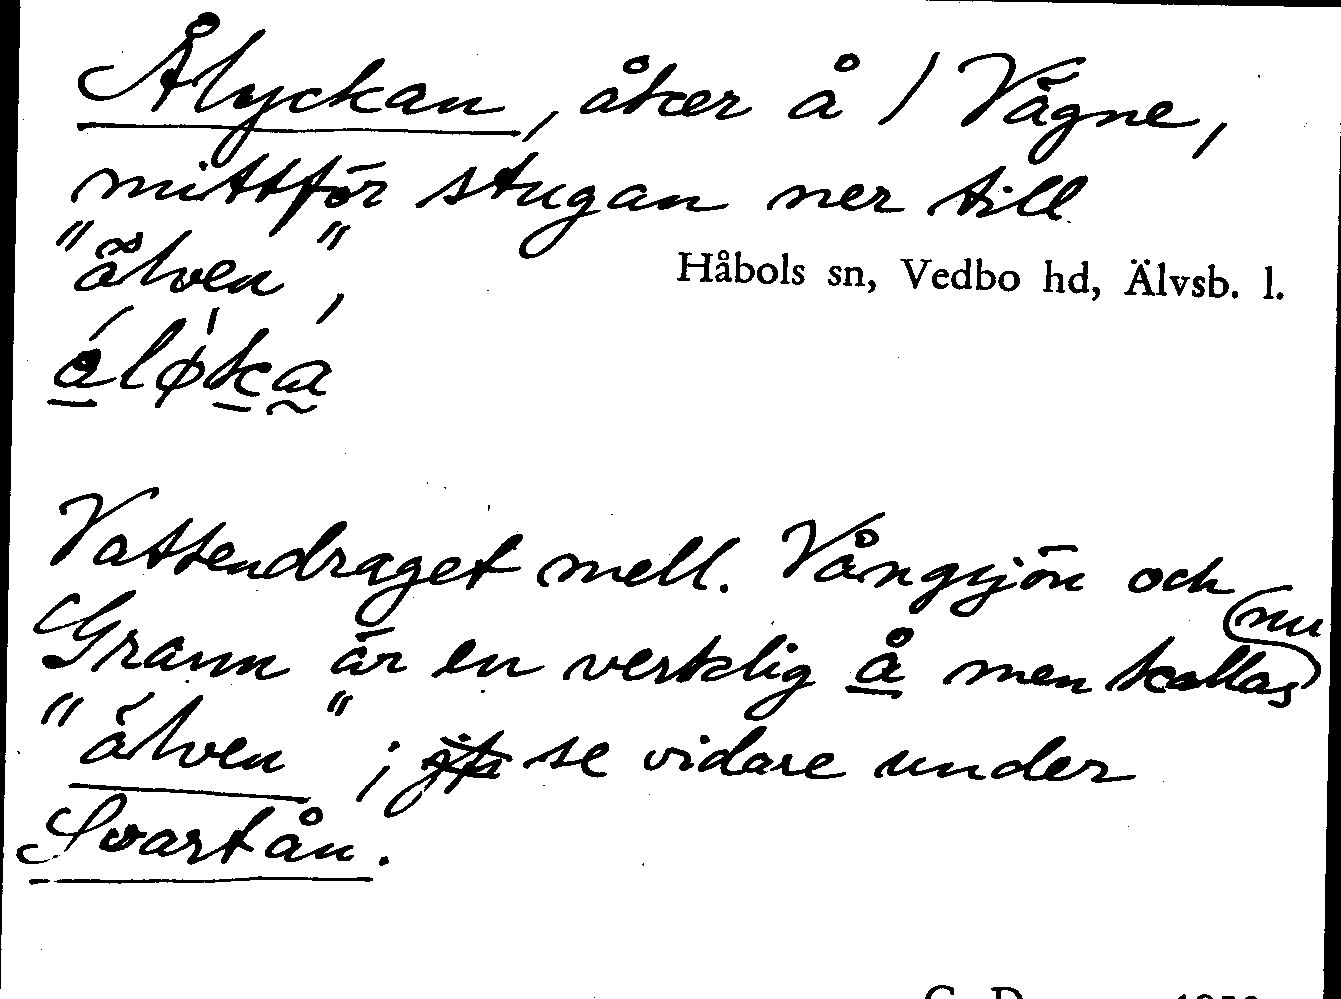 Ålyckan, åker å 1 Vågne,
mittför stugan ner till
"älven",
Håbols sn, Vedbo hd, Älvsb. l.
Vattendraget mell. Vångsjön och
Grann är en verklig å men nu kallas
"älven"; se vidare under
Svartån.